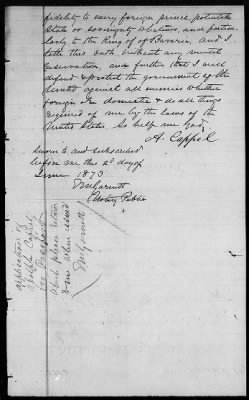 fidelity to every foreign prince, potentate
State or sovereignty whatever, and particu-
larly to the King of Bavaria, and I
take this oath without any mental
reservation, and further that I will
defend & protect the government of the
United against all enemies whether
foreign or domestic & do all things
required of me by the laws of the
United States. So help me God
A. Cappel
Sworn to and subscribed
before me this 2d day of
June 1873
Notary Public
Application of
Adolph Cappel
for Passport
which please return
to me when issued